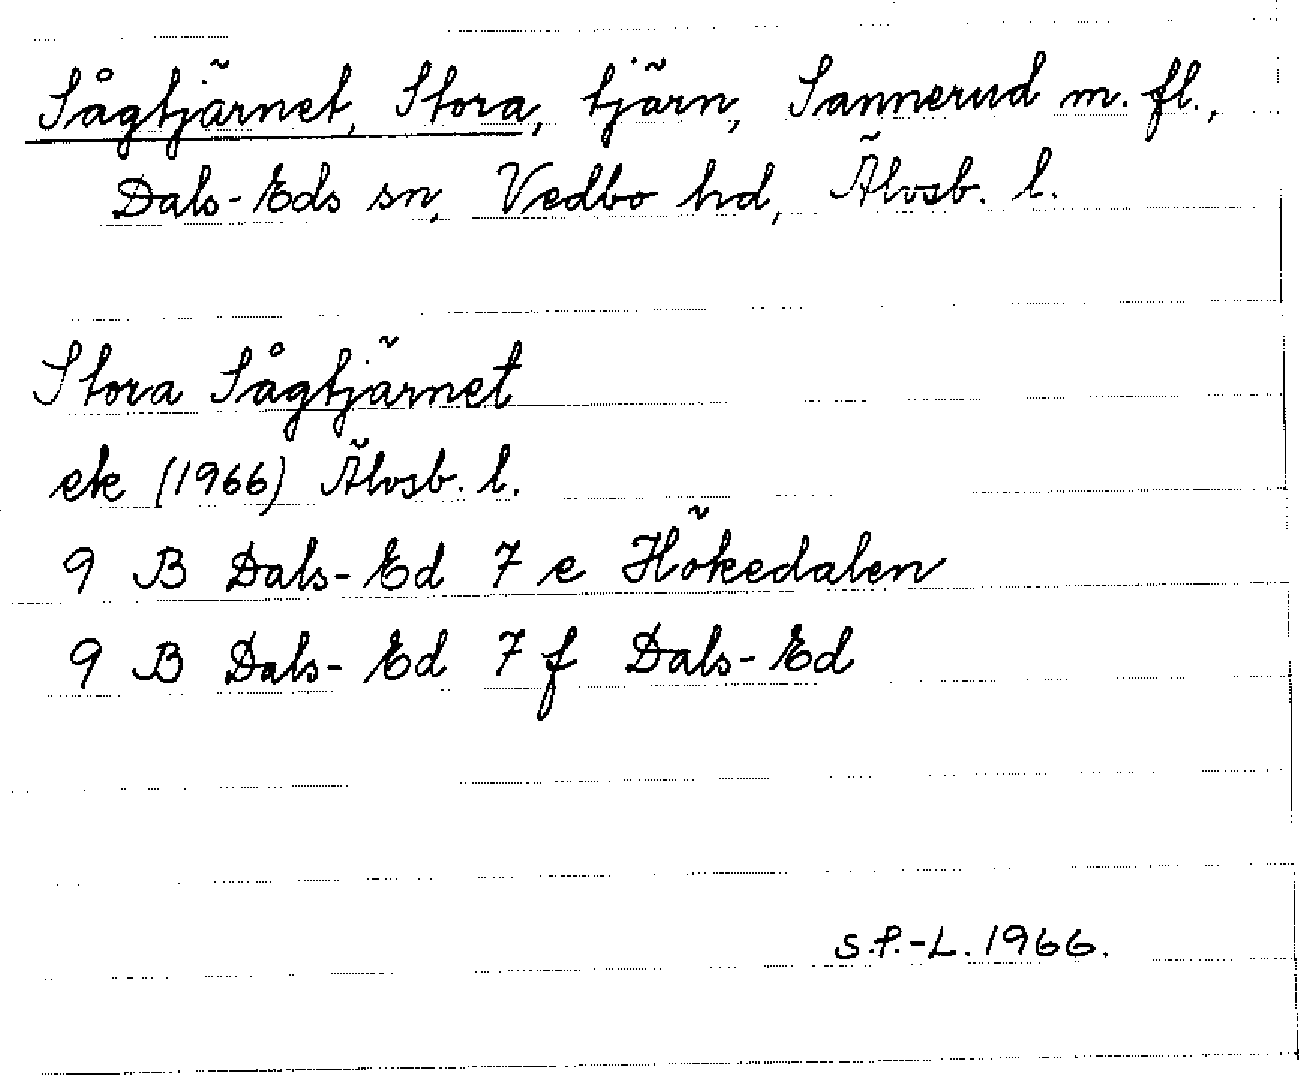 Sågtjärnet, Stora, tjärn, Sannerud m. fl.,
Dals-Eds sn, Vedbo hd, Älvsb. l.
Stora Sågtjärnet
ek (1966) Älvsb. l.
9 B Dals-Ed 7 e Hökedalen
9 B Dals-Ed 7 f Dals-Ed
S.P.-L. 1966.